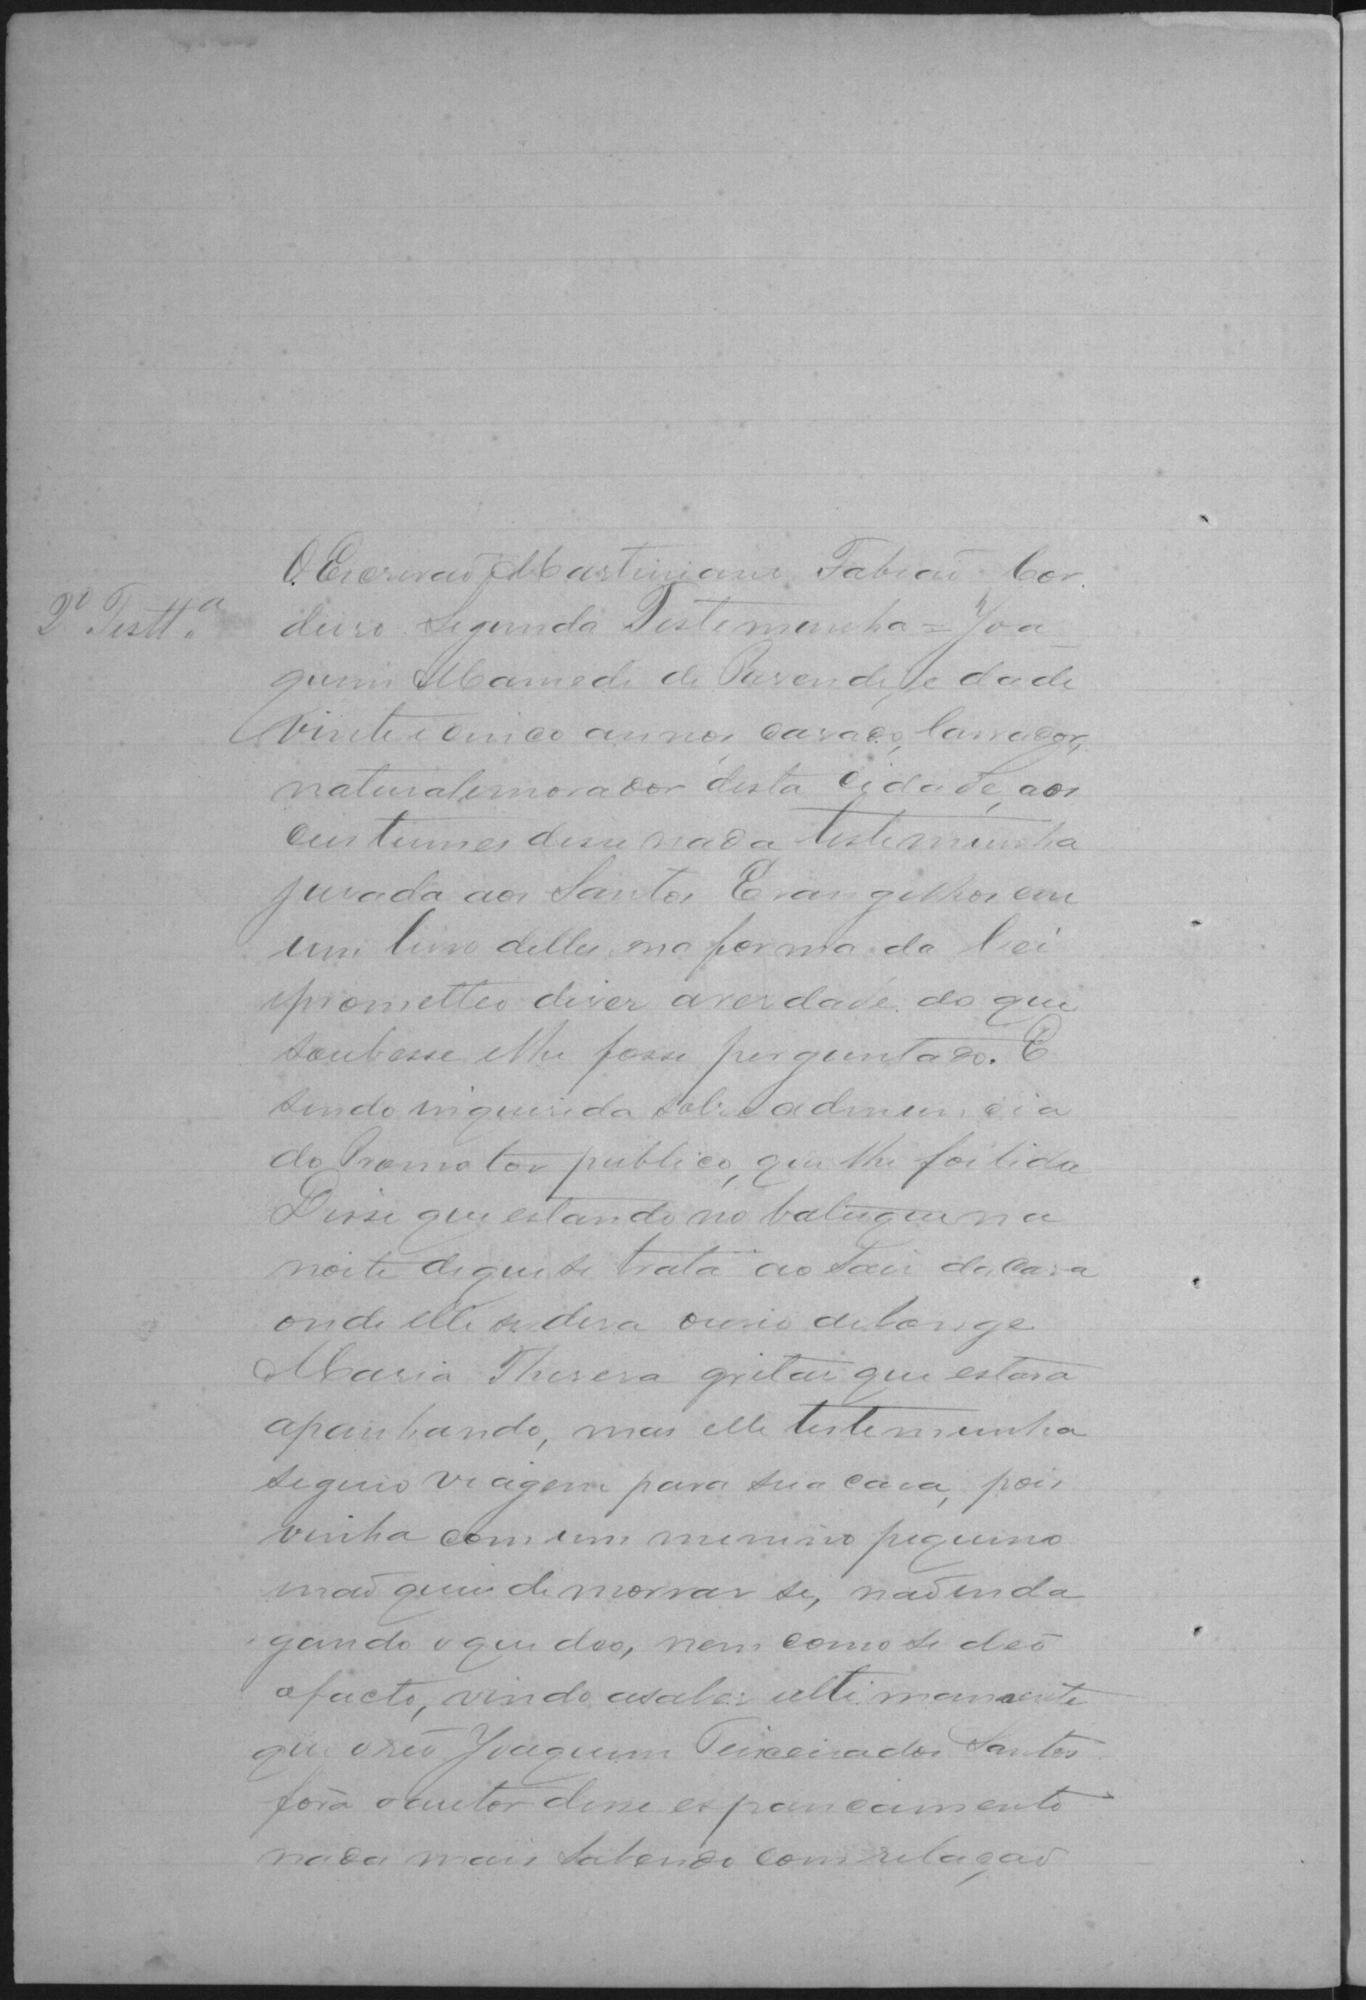 O Escrivaõ Martiniano Fabiaõ Cor
2ª Testtª
deiro Segunda Testemunha = Joa
quim Mamede de Rezende, edade
vinte e cinco annos, casado, lavrador,
natural e morador desta cidade, aos
custumes disse nada testemunha
jurada aos Santos Evangelhos em
um livro delles na forma da lei
e prometteo dizer a verdade do que
soubesse e lhe fosse perguntado. E
sendo inquirida sobre a denuncia
do Promotor publico, que lhe foi lida
Disse que estando no batuque na
noite de que se trata ao sair da casa
onde elle se dera ouvio de longe
Maria Thereza gritar que estava
apanhando, mas elle testemunha
seguio viagem para sua casa, pois
vinha com um menino pequeno
e naõ quiz demorrar se, naõ inda
gando o que deo, nem como se deo
o facto, vindo a saber ultimamente
que o réo Joaquim Teixeira dos Santos
fora o autor desse espancamento
nada mais sabendo com relaçaõ